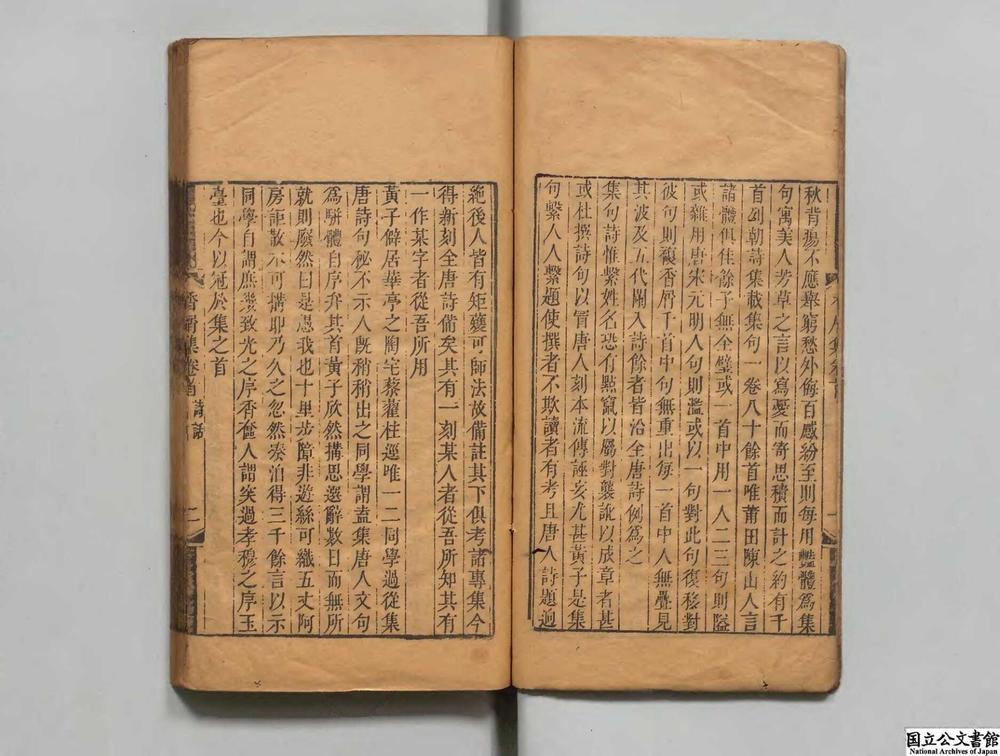 秋背揚不應舉窮愁外侮百感紛至則每用豔體爲集
句寓美人芳草之言以寫憂而寄思積而計之約有千
首列朝詩集載集句一卷八十餘首唯莆田陳山人言
諸體俱佳餘子無全璧或一首中用一人二三句則隘
或雜用唐宋元明人句則濫或以一句對此句復移對
彼句則複香屑千首中句無重出每一首中人無疊見
其波及五代闌入詩餘者皆沿全唐詩例爲之
集句詩惟繫姓名恐有點竄以屬對襲訛以成章者甚
或杜撰詩句以冒唐人刻本流傳誣妄尤甚黃子是集
句繫人人繫題使撰者不欺讀者有考且唐人詩題逈
絶後人皆有矩矱可師法故備註其下俱考諸專集今
得新刻全唐詩備矣其有一刻某人者從吾所知其有
一作某字者從吾所用
黃子僻居華亭之陶宅藜藿柱逕唯一二同學過從集
唐詩句秘不示人旣稍稍出之同學謂盍集唐人文句
爲駢體自序弁其首黃子欣然搆思選辭數日而無所
就則廢然曰是愚我也十里步障非遊絲可織五丈阿
房詎散木可搆耶乃久之忽然湊泊得三千餘言以示
同學自謂庶幾致光之序香奩人謂突過孝穆之序玉
臺也今以冠於集之首
香屑集卷首 詩話
二
国立公文書館
National Archives of Japan